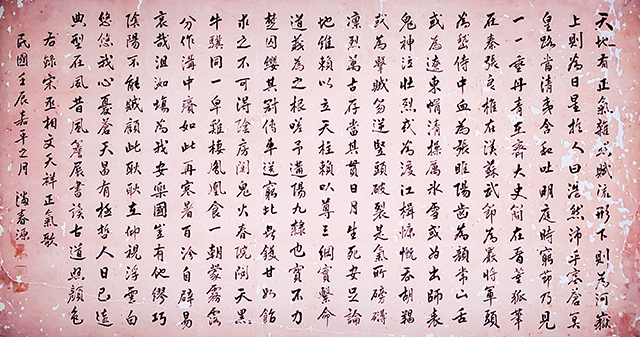 天地有正氣雜然賦流形下則為河嶽
上則為日星於人曰浩然沛乎塞蒼冥
皇路當清夷含和吐明庭時窮節乃見
一一垂丹青在齊太史簡在晉董狐筆
在秦張良椎在漢蘇武節為嚴將軍頭
為嵇侍中血為張睢陽齒為顏常山舌
或為遼東帽清操厲冰雪或為出師表
鬼神泣壯烈或為渡江楫慷慨吞胡羯
或為擊賊笏逆豎頭破裂是氣所磅礴
凜烈萬古存當其貫日月生死安足論
地維賴以立天柱賴以尊三綱實繫命
道義為之根嗟予遘陽九隸也實不力
楚囚纓其冠傳車送窮北鼎鑊甘如飴
求之不可得陰房闃鬼火春院閟天黑
牛驥同一皁雞棲鳳凰食一朝蒙霧露
分作溝中瘠如此再寒暑百沴自辟易
哀哉沮洳場為我安樂國豈有他繆巧
陰陽不能賊顧此耿耿在仰視浮雲白
悠悠我心憂蒼天曷有極哲人日已遠
典型在夙昔風簷展書讀古道照顏色
右錄宋丞相文天祥正氣歌
民國壬辰嘉平之月 潘春源